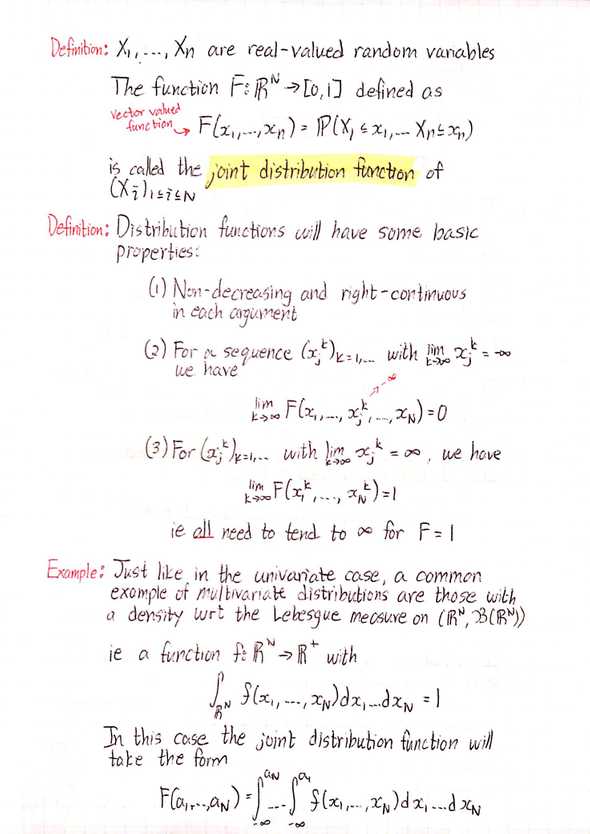 Definition: X₁, ..., Xn are real-valued random variables
The function F: ℝᴺ → [0,1] defined as
vector valued
function → F(x₁,...,xn) = ℙ(X₁ ≤ x₁,... Xn ≤ xn)
is called the joint distribution function of
(Xi)1≤i≤N
Definition: Distribution functions will have some basic
properties:
(1) Non-decreasing and right-continuous
in each argument
(2) For a sequence (xⱼᵏ)k=1,... with lim k→∞ xⱼᵏ = -∞
we have
→ -∞
lim k→∞ F(x₁,..., xⱼᵏ,..., xN) = 0
(3) For (xⱼᵏ)k=1,... with lim k→∞ xⱼᵏ = ∞, we have
lim k→∞ F(x₁ᵏ,..., xNᵏ) = 1
ie all need to tend to ∞ for F = 1
Example: Just like in the univariate case, a common
example of multivariate distributions are those with
a density wrt the Lebesgue measure on (ℝᴺ, ℬ(ℝᴺ))
ie a function f: ℝᴺ → ℝ⁺ with
∫ℝᴺ f(x₁, ..., xN)dx₁...dxN = 1
In this case the joint distribution function will
take the form
F(a₁,...,aN) = ∫-∞^aN ... ∫-∞^a₁ f(x₁,...,xN)dx₁...dxN